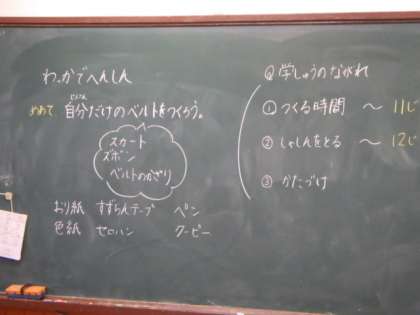 わっかでへんしん
めあて 自分だけのベルトをつくろう。
じぶん
スカート
ズボン
ベルトのかざり
おり紙 すずらんテープ ペン
色紙 セロハン クーピー
学しゅうのながれ
① つくる時間 ～ 11じ
② しゃしんをとる ～ 12じ
③ かたづけ